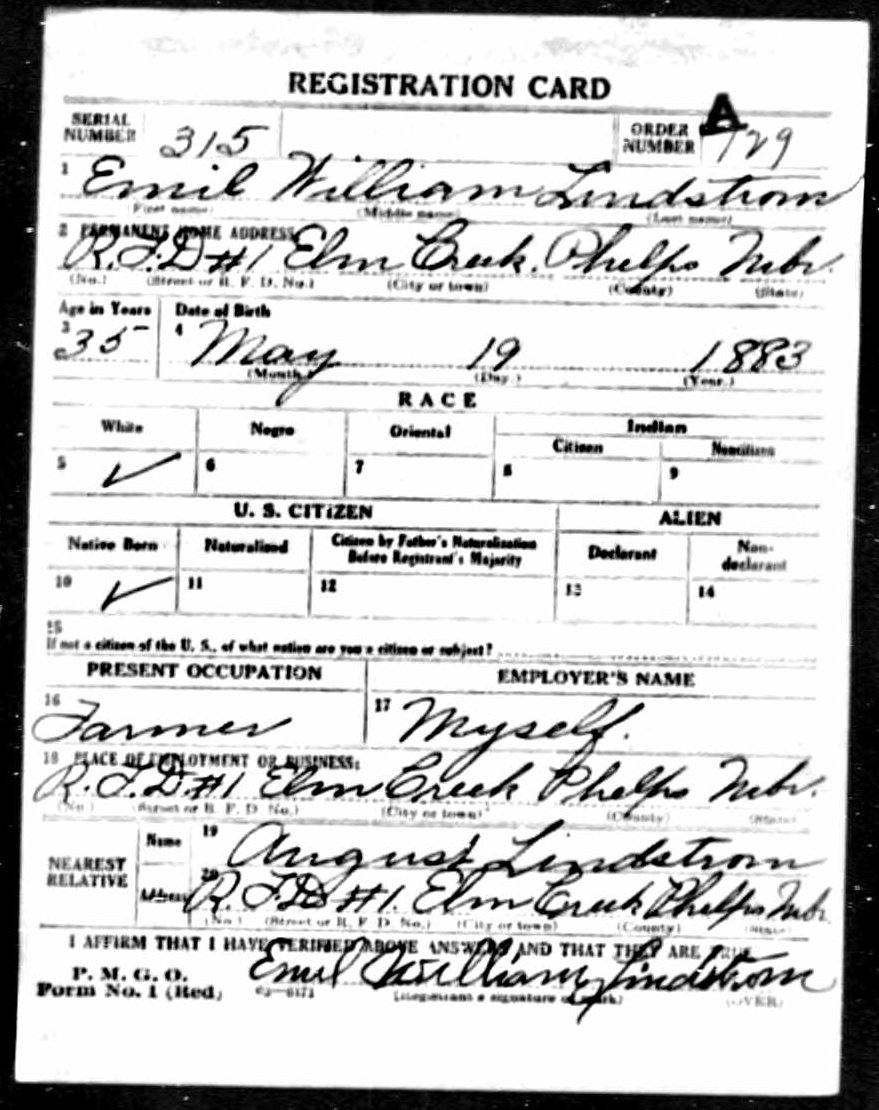 REGISTRATION CARD
SERIAL NUMBER 315 ORDER NUMBER A 129
1 Emil William Lindstrom
(First name) (Middle name) (Last name)
2 PERMANENT HOME ADDRESS:
R.F.D #1 Elm Creek, Phelps Nebr.
(No.) (Street or R. F. D. No.) (City or town) (County) (State)
Age in Years Date of Birth
3 35 4 May 19 1883
(Month.) (Day.) (Year.)
RACE
White Negro Oriental Indian
Citizen Noncitizen
5 ✓ 6 7 8 9
U. S. CITIZEN ALIEN
Native Born Naturalized Citizen by Father's Naturalization Before Registrant's Majority Declarant Non-declarant
10 ✓ 11 12 13 14
15
If not a citizen of the U. S., of what nation are you a citizen or subject?
PRESENT OCCUPATION EMPLOYER'S NAME
16 Farmer 17 Myself.
18 PLACE OF EMPLOYMENT OR BUSINESS:
R.F.D #1 Elm Creek Phelps Nebr.
(No.) (Street or R. F. D. No.) (City or town) (County) (State)
NEAREST RELATIVE Name 19 August Lindstrom
Address 20 R.F.D #1. Elm Creek Phelps Nebr.
(No.) (Street or R. F. D. No.) (City or town) (County) (State)
I AFFIRM THAT I HAVE VERIFIED ABOVE ANSWERS AND THAT THEY ARE TRUE
P. M. G. O.
Form No. 1 (Red) 03—6171 Emil William Lindstrom
(Registrant's signature or mark) (OVER)